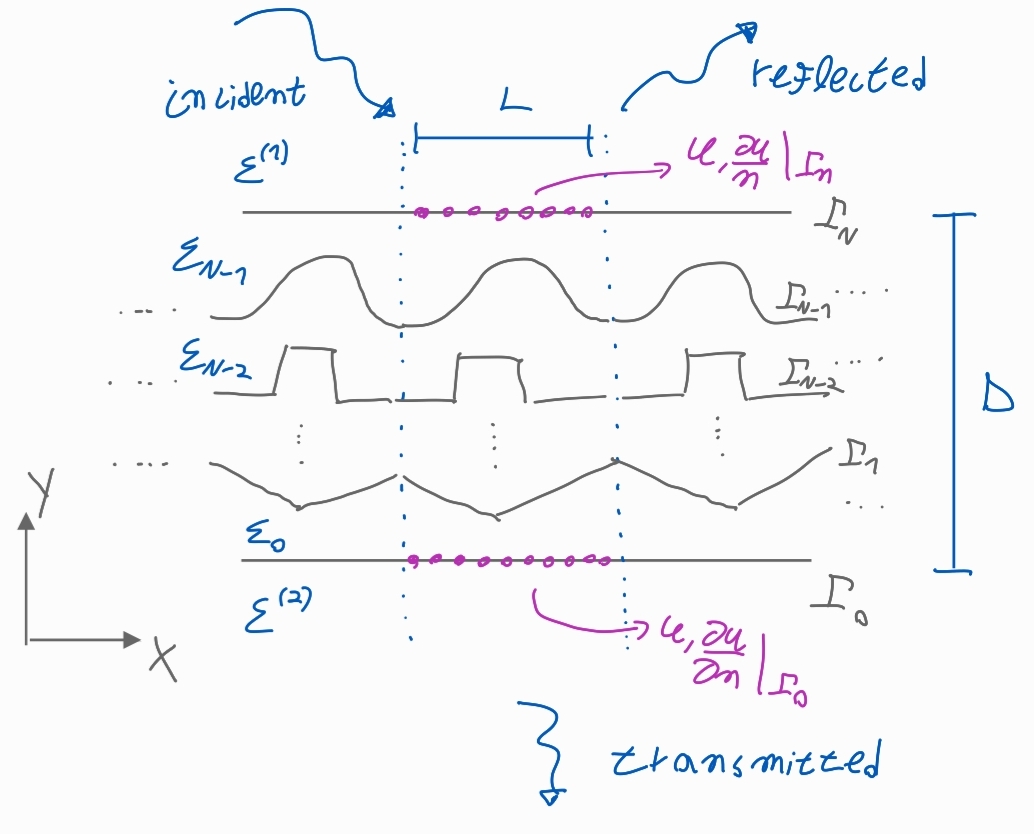 incident
reflected
L
ε⁽¹⁾
u, ∂u/n |Γn
Γ_N
ε_N-1
Γ_N-1
ε_N-2
Γ_N-2
D
Γ_1
Y
ε_0
ε⁽²⁾
Γ_0
X
u, ∂u/∂n |Γ_0
transmitted